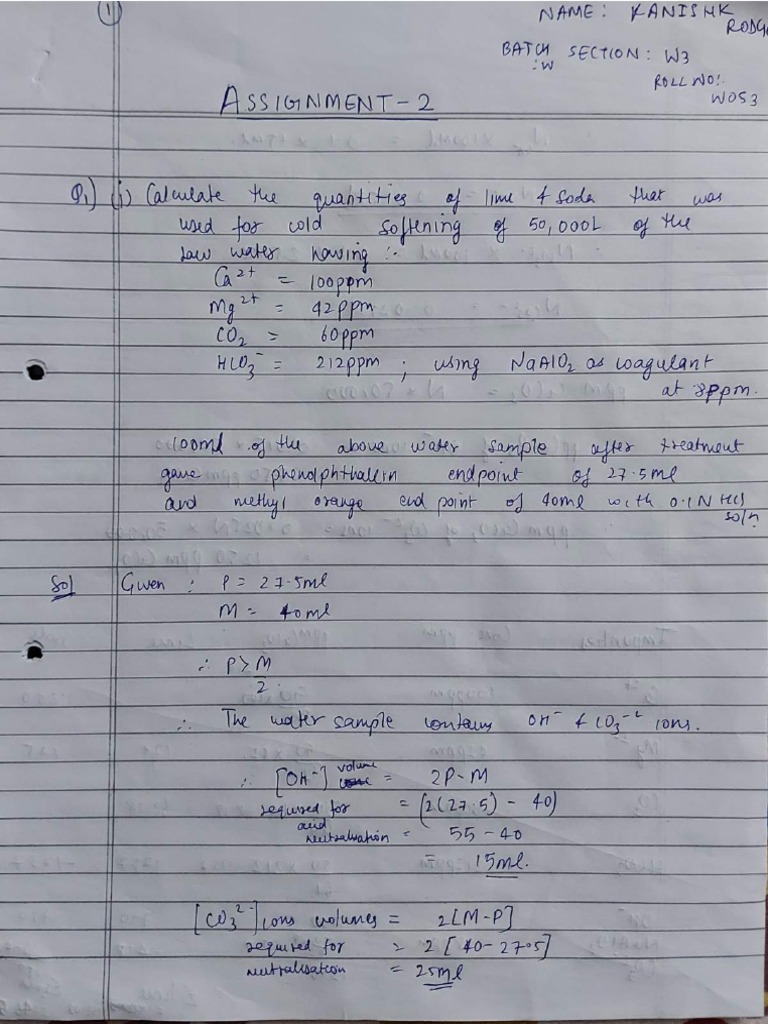 (1)
NAME: KANISHK
BATCH SECTION: W3
:W
ROLL NO:
W053
ASSIGNMENT-2
Q1) (i) Calculate the quantities of lime & soda that was
used for cold softening of 50,000L of the
raw water having :-
Ca2+ = 100ppm
Mg2+ = 42ppm
CO2 = 60ppm
HCO3- = 212ppm ; using NaAlO2 as coagulant
at 8ppm.
100ml of the above water sample after treatment
gave phenolphthalein endpoint of 27.5ml
and methyl orange end point of 40ml with 0.1N HCl
soln.
Sol Given : P = 27.5ml
M = 40ml
∴ P > M/2.
∴ The water sample contains OH- & CO3-2 ions.
∴ [OH-] volume = 2P-M
required for = (2(27.5) - 40)
acid
neutralisation = 55-40
= 15ml.
[CO32-] ions volumes = 2[M-P]
required for = 2[40-27.5]
neutralisation = 25ml